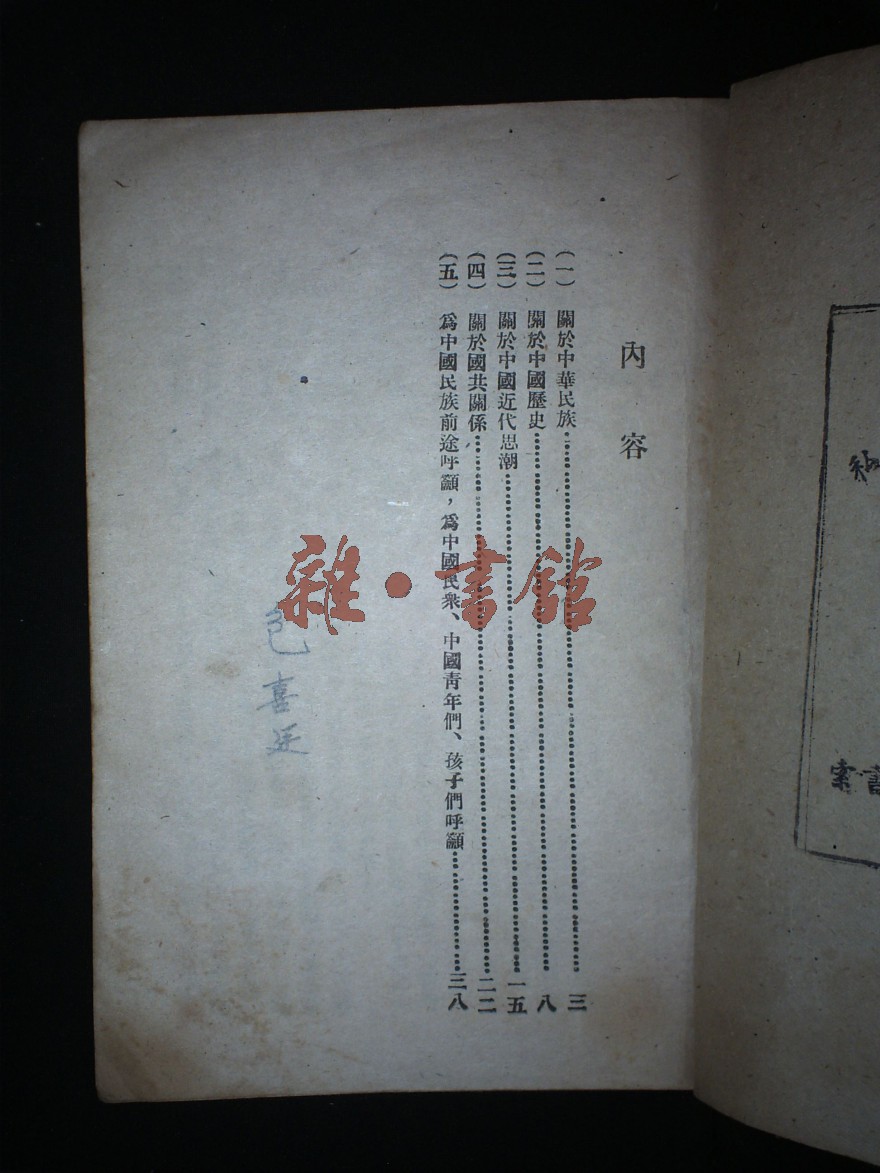 內容
(一) 關於中華民族……三
(二) 關於中國歷史……八
(三) 關於中國近代思潮……一五
(四) 關於國共關係……二二
(五) 爲中國民族前途呼籲，爲中國民衆、中國靑年們、孩子們呼籲……三八
雜·書館
喜廷
書
索